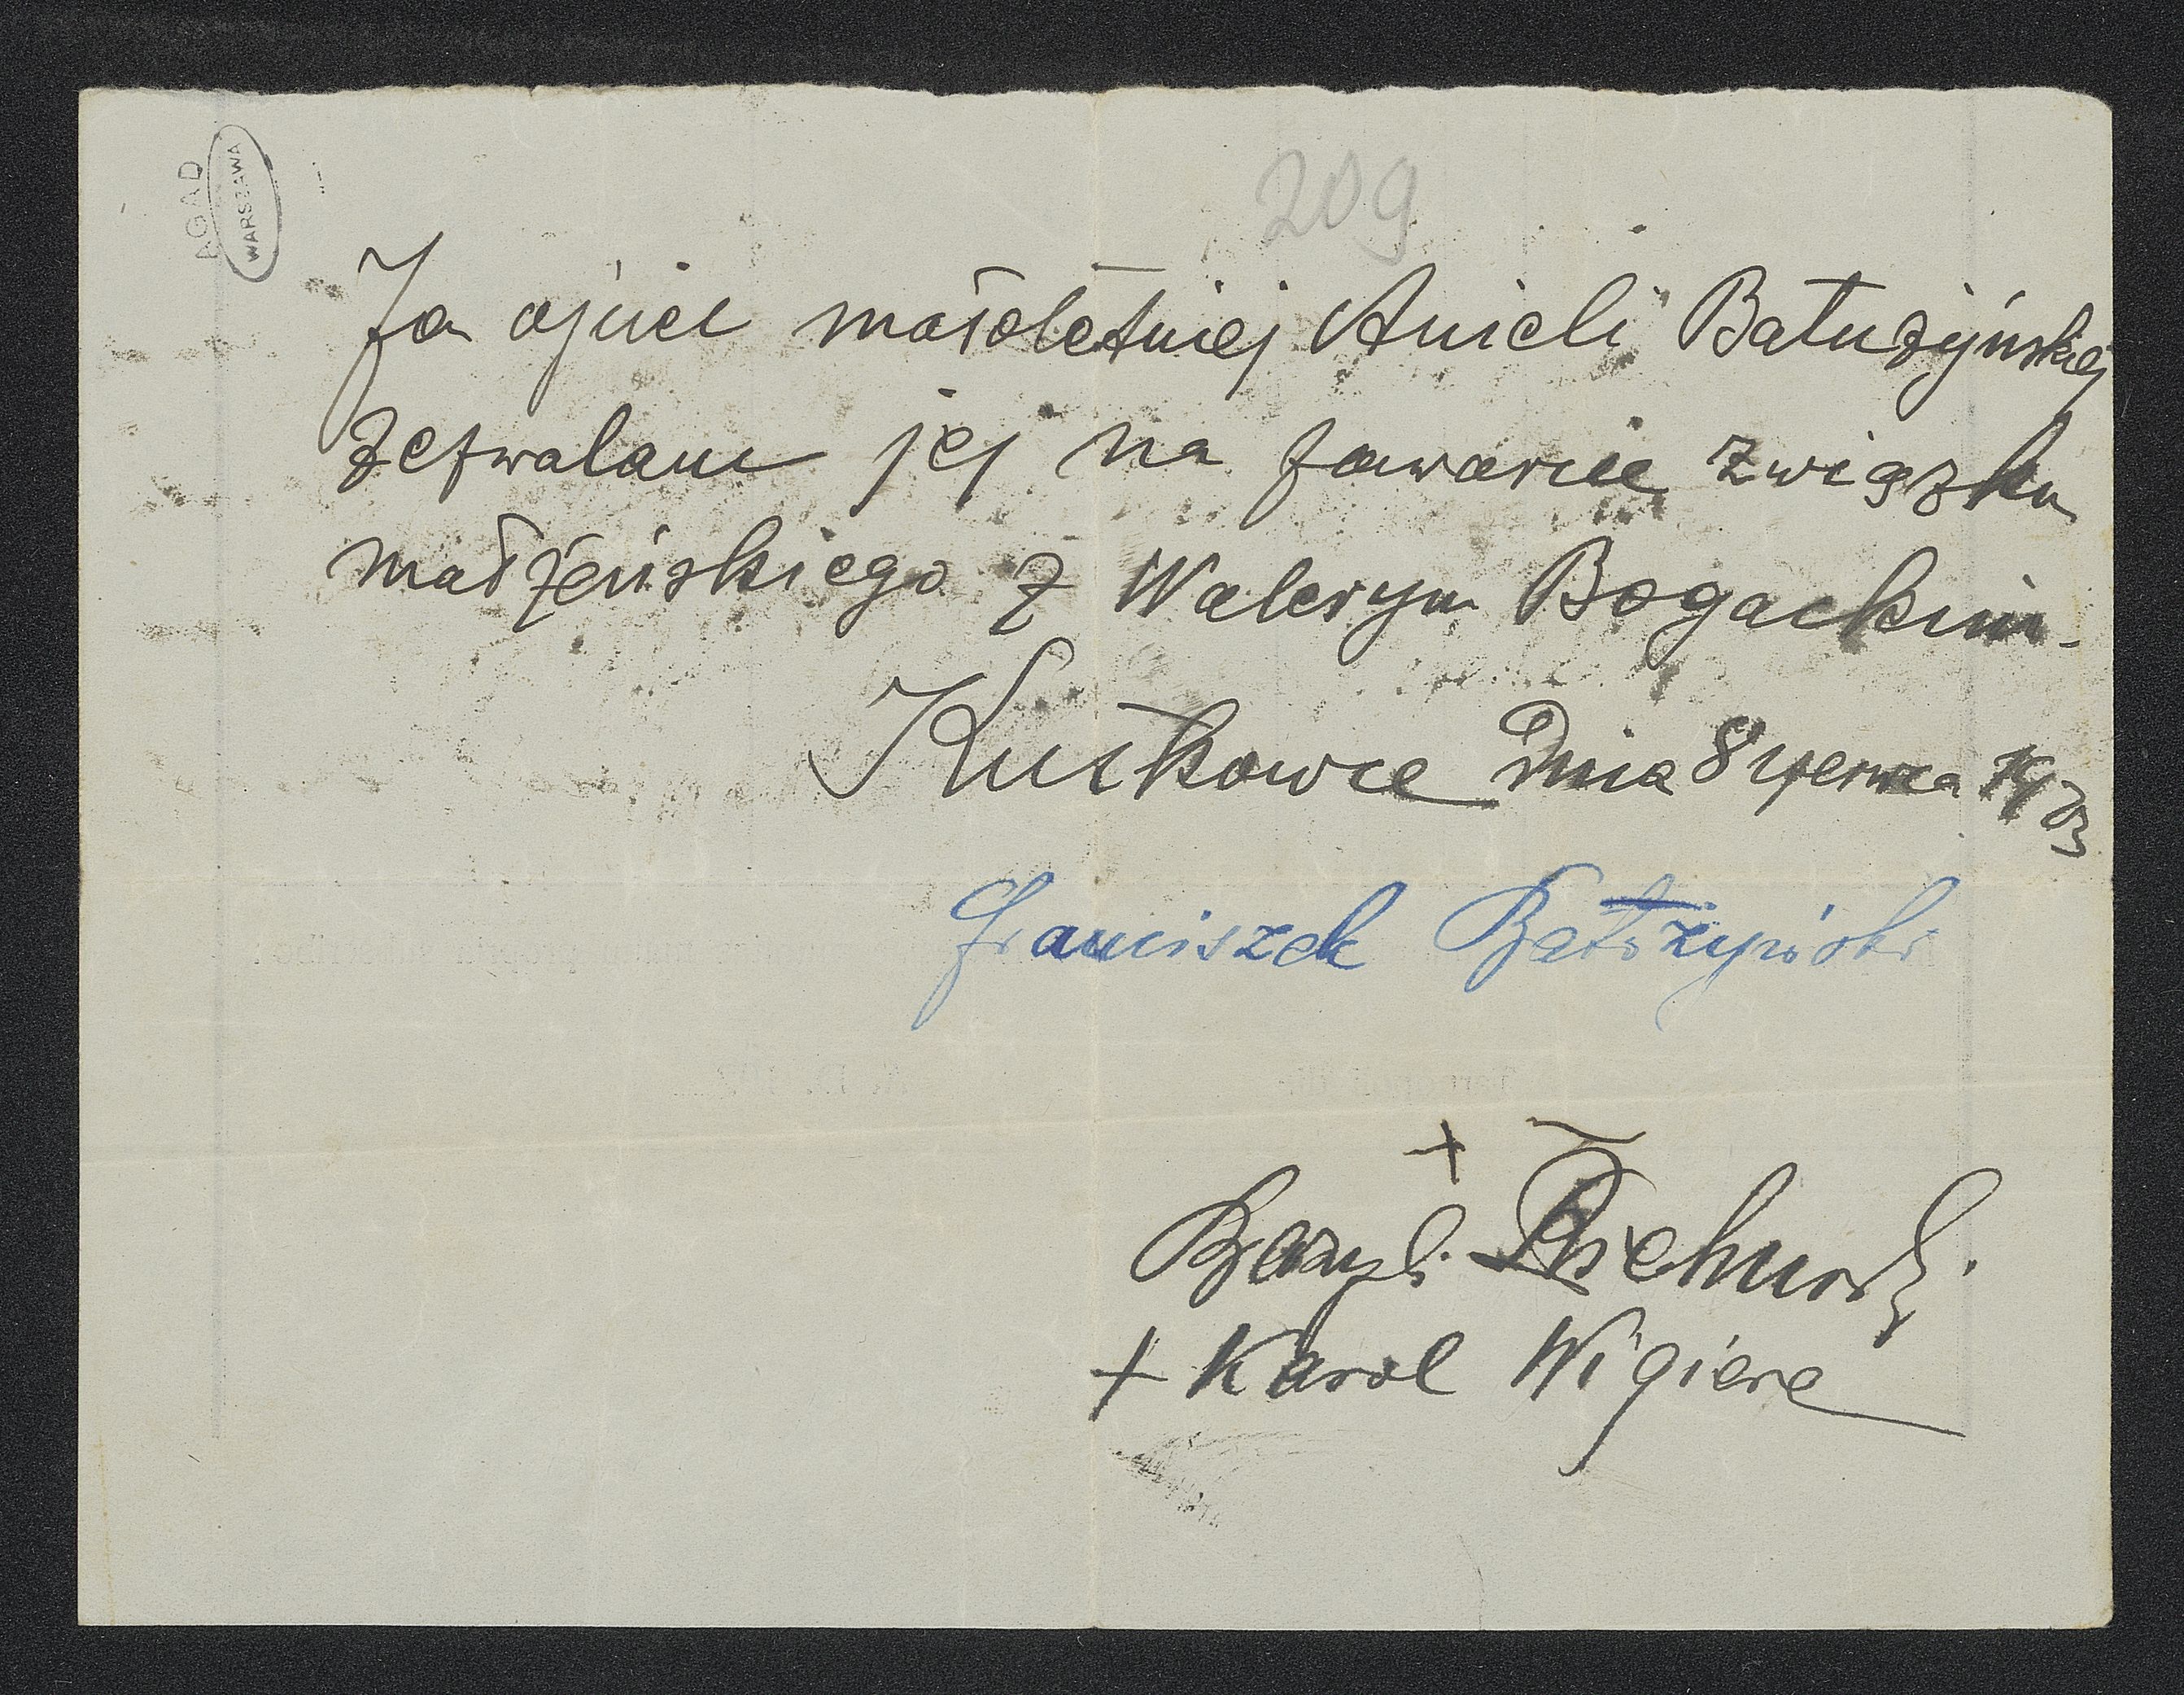 AGAD
WARSZAWA
209
Ja ojciec małoletniej Anieli Bałuszyńskiej
zezwalam jej na zawarcie związku
małżeńskiego z Walerym Bogackim.
Kutkowce Dnia 8 czerwca
Franciszek
+
Bazyli
+ Karol Wigiera